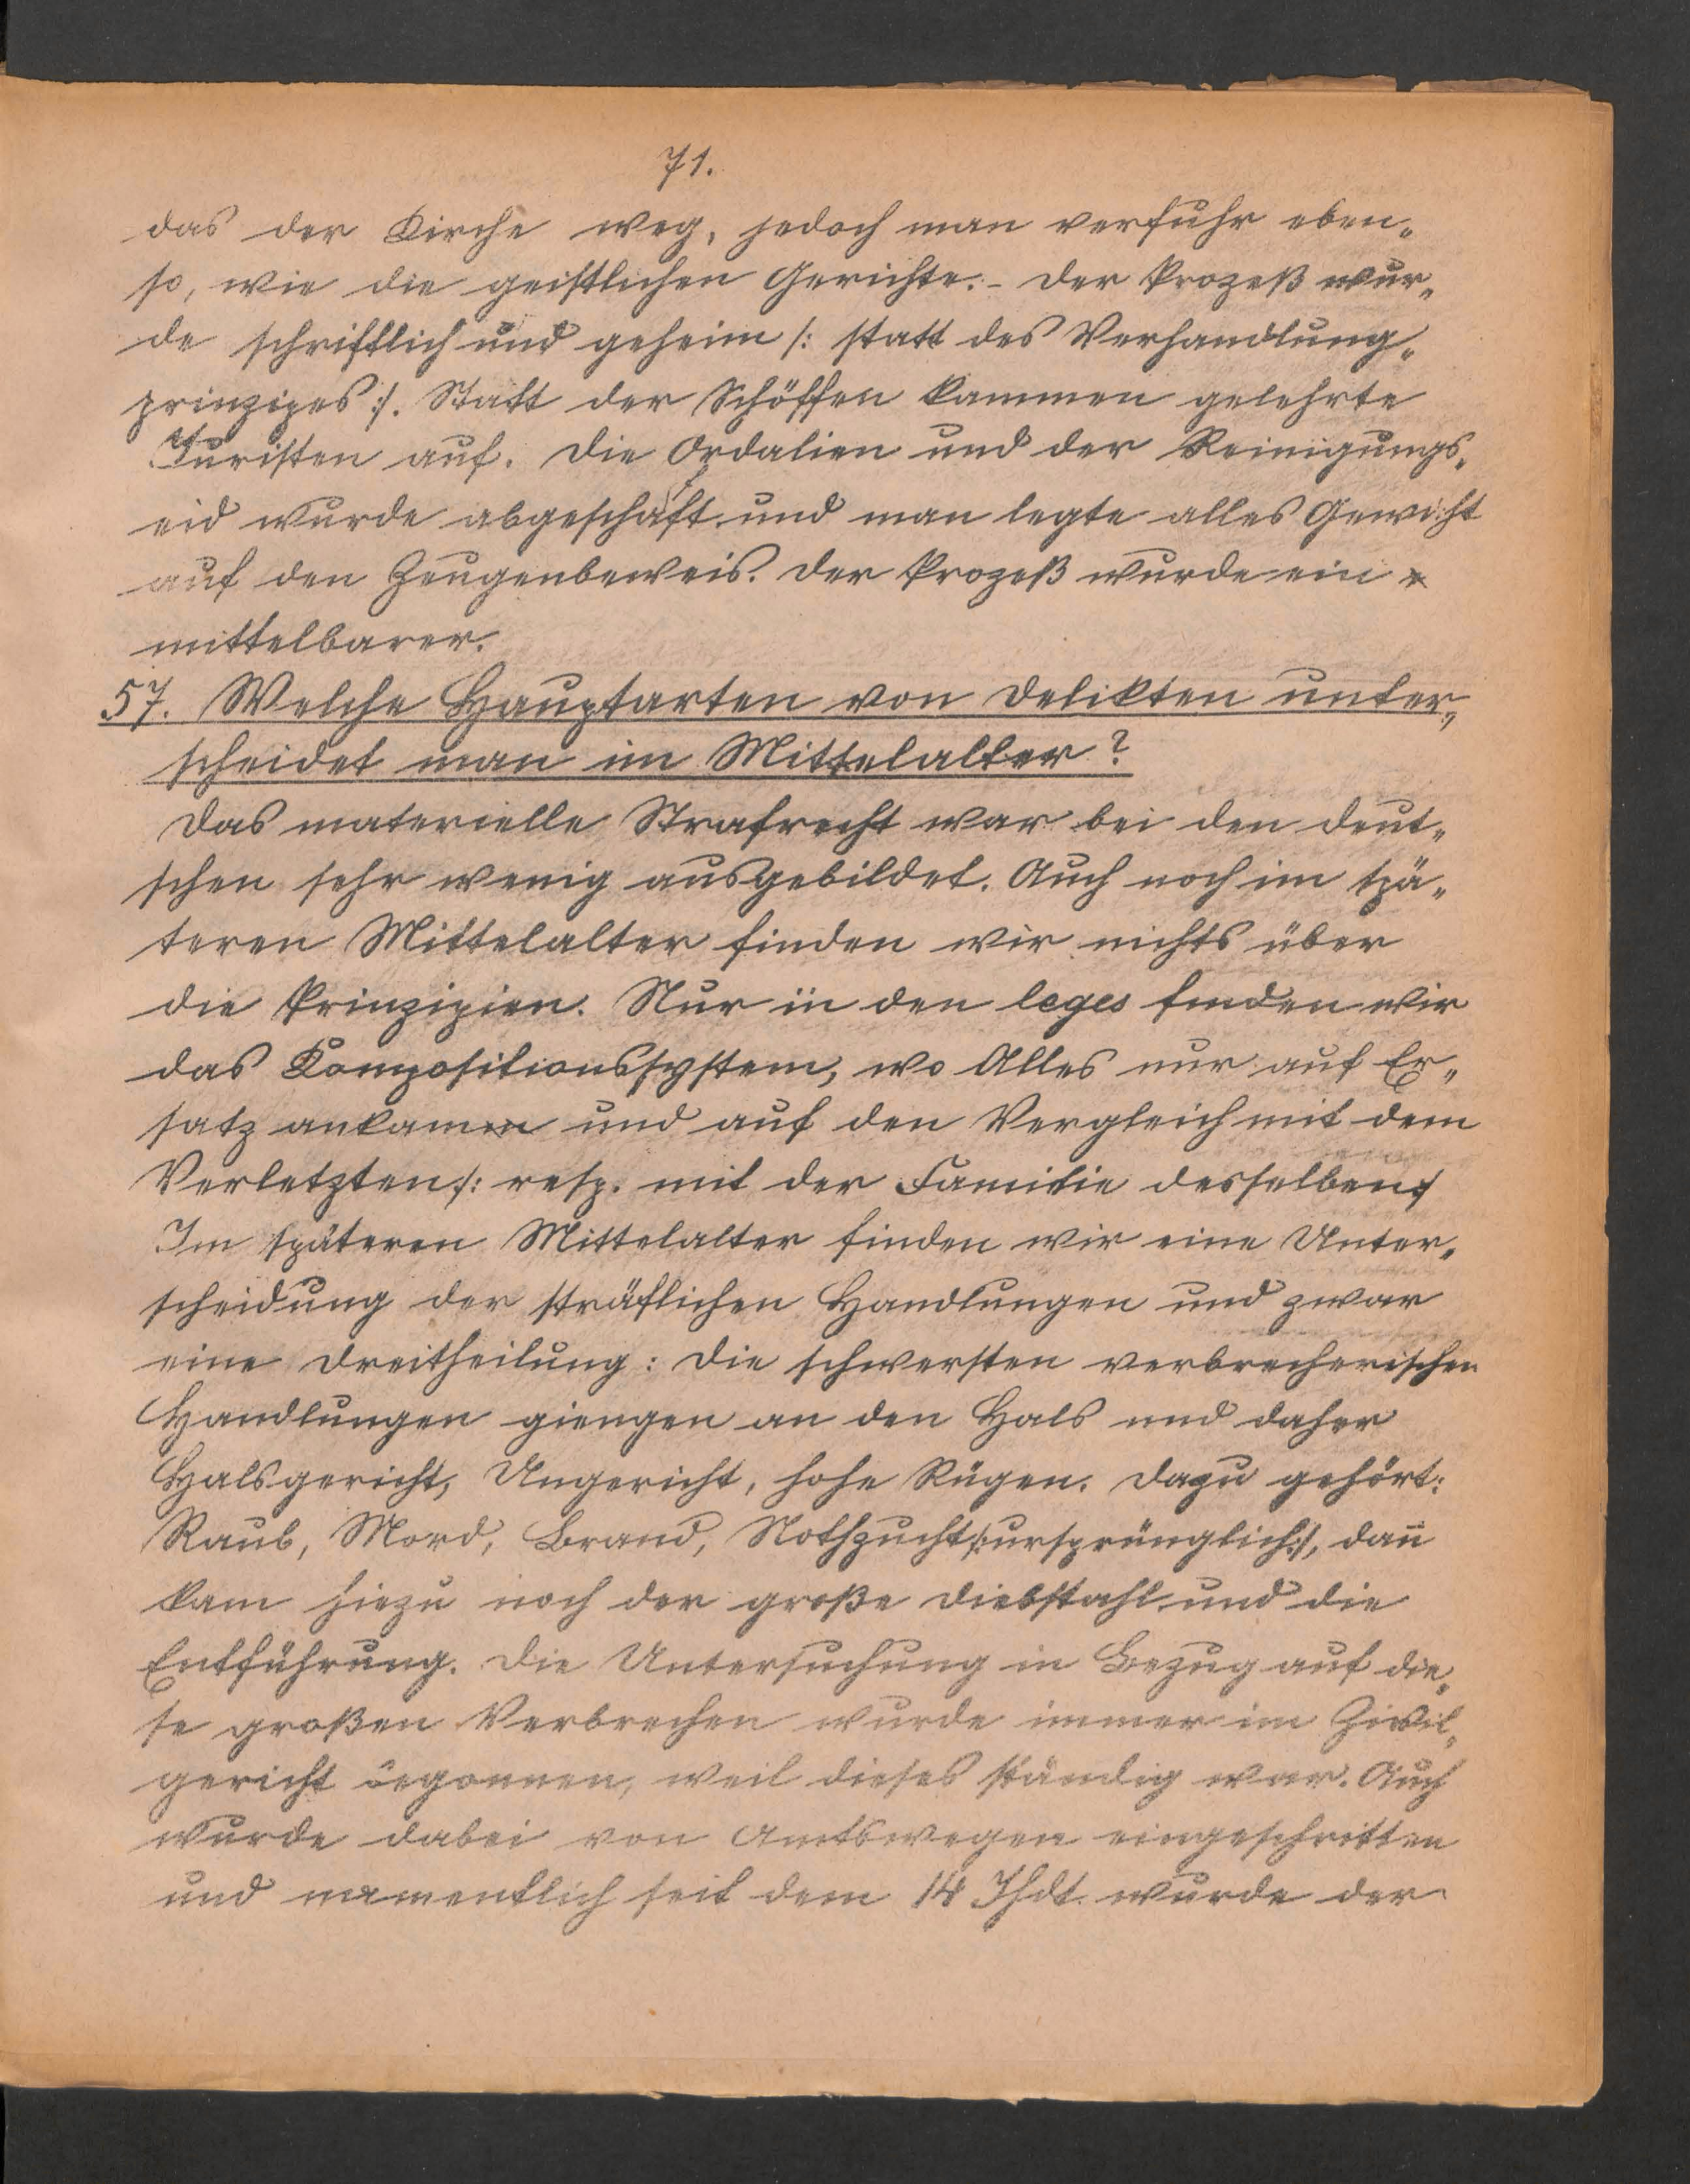 71.
das der Kirche weg, jedoch man verfuhr eben„
so, wie die geistlichen Gerichte. - Der Prozeß wur„
de schriftlich und geheim /: statt des Verhandlung„
prinzipes :/. Statt der Schöffen kammen gelehrte
Juristen auf. Die Ordalien und der Reinigungs„
eid wurde abgeschafft und man legte alles Gewicht
auf den Zeugenbeweis. Der Prozeß wurde ein
mittelbarer.
57. Welche Hauptarten von Delikten unter„
scheidet man im Mittelalter?
Das materielle Strafrecht war bei den Deut„
schen sehr wenig ausgebildet. Auch noch im spä„
teren Mittelalter finden wir nichts über
die Prinzipien. Nur in den leges finden wir
das Kompositionssystem, wo Alles nur auf Er„
satz ankam und auf den Vergleich mit dem
Verletzten /: resp. mit der Familie desselben :/
Im späteren Mittelalter finden wir eine Unter„
scheidung der sträflichen Handlungen und zwar
eine Dreitheilung: Die schwersten verbrecherischen
Handlungen giengen an den Hals und daher
Halsgericht, Ungericht, hohe Rügen. Dazu gehört:
Raub, Mord, Brand, Nothzucht /: ursprünglich :/, dan̄
kam hiezu noch der große Diebstahl und die
Entführung. Die Untersuchung in Bezug auf die„
se großen Verbrechen wurde immer im Zivil„
gericht begonnen, weil dieses ständig war. Auch
wurde dabei von Amtswegen eingeschritten
und namentlich seit dem 14 Jhdt. wurde der